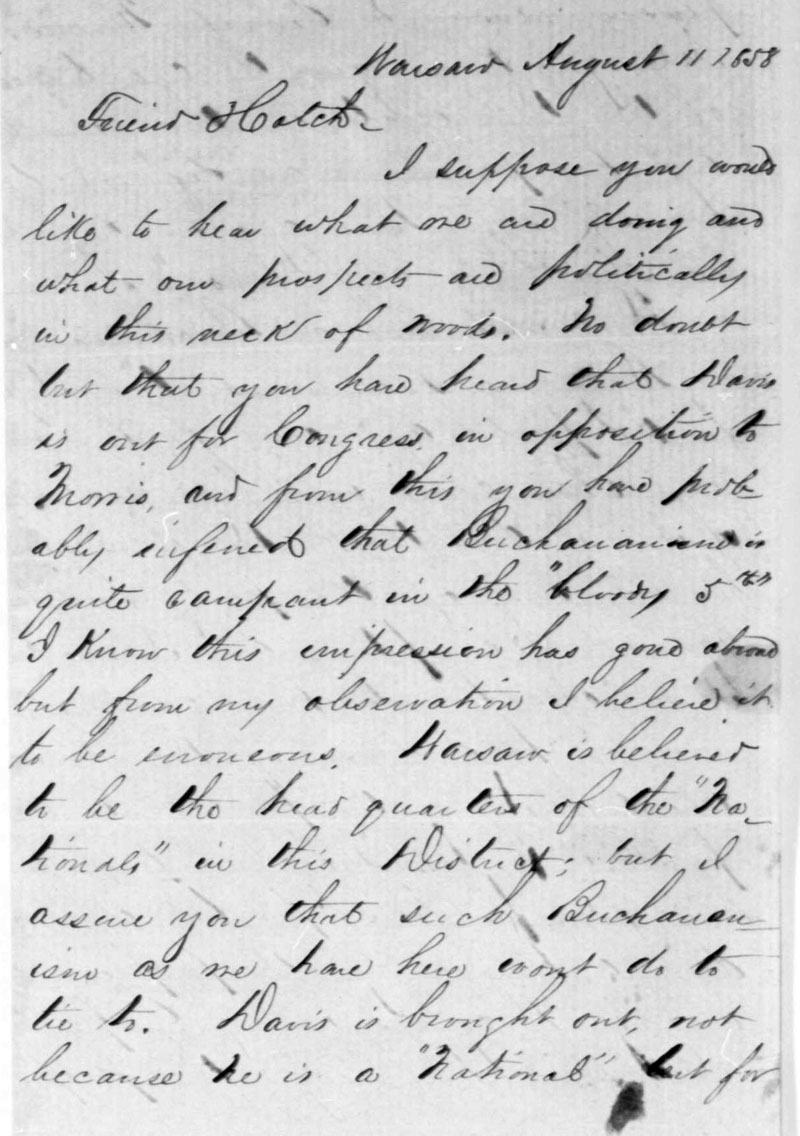 Warsaw August 11 1858
Friend Hatch-
I suppose you would
like to hear what we are doing and
what our prospects are politically
in this neck of woods. No doubt
but that you have heard that Davis
is out for Congress in opposition to
Morris, and from this you have prob-
ably infered that Buchananism is
quite rampant in the "bloody 5th"
I know this impression has gone abroad
but from my observation I believe it
to be erroneous. Warsaw is believed
to be the head quarters of the "Na-
tionals" in this District; but I
assure you that such Buchanan-
ism as we have here wont do to
tie to. Davis is brought out, not
because he is a "National" but for